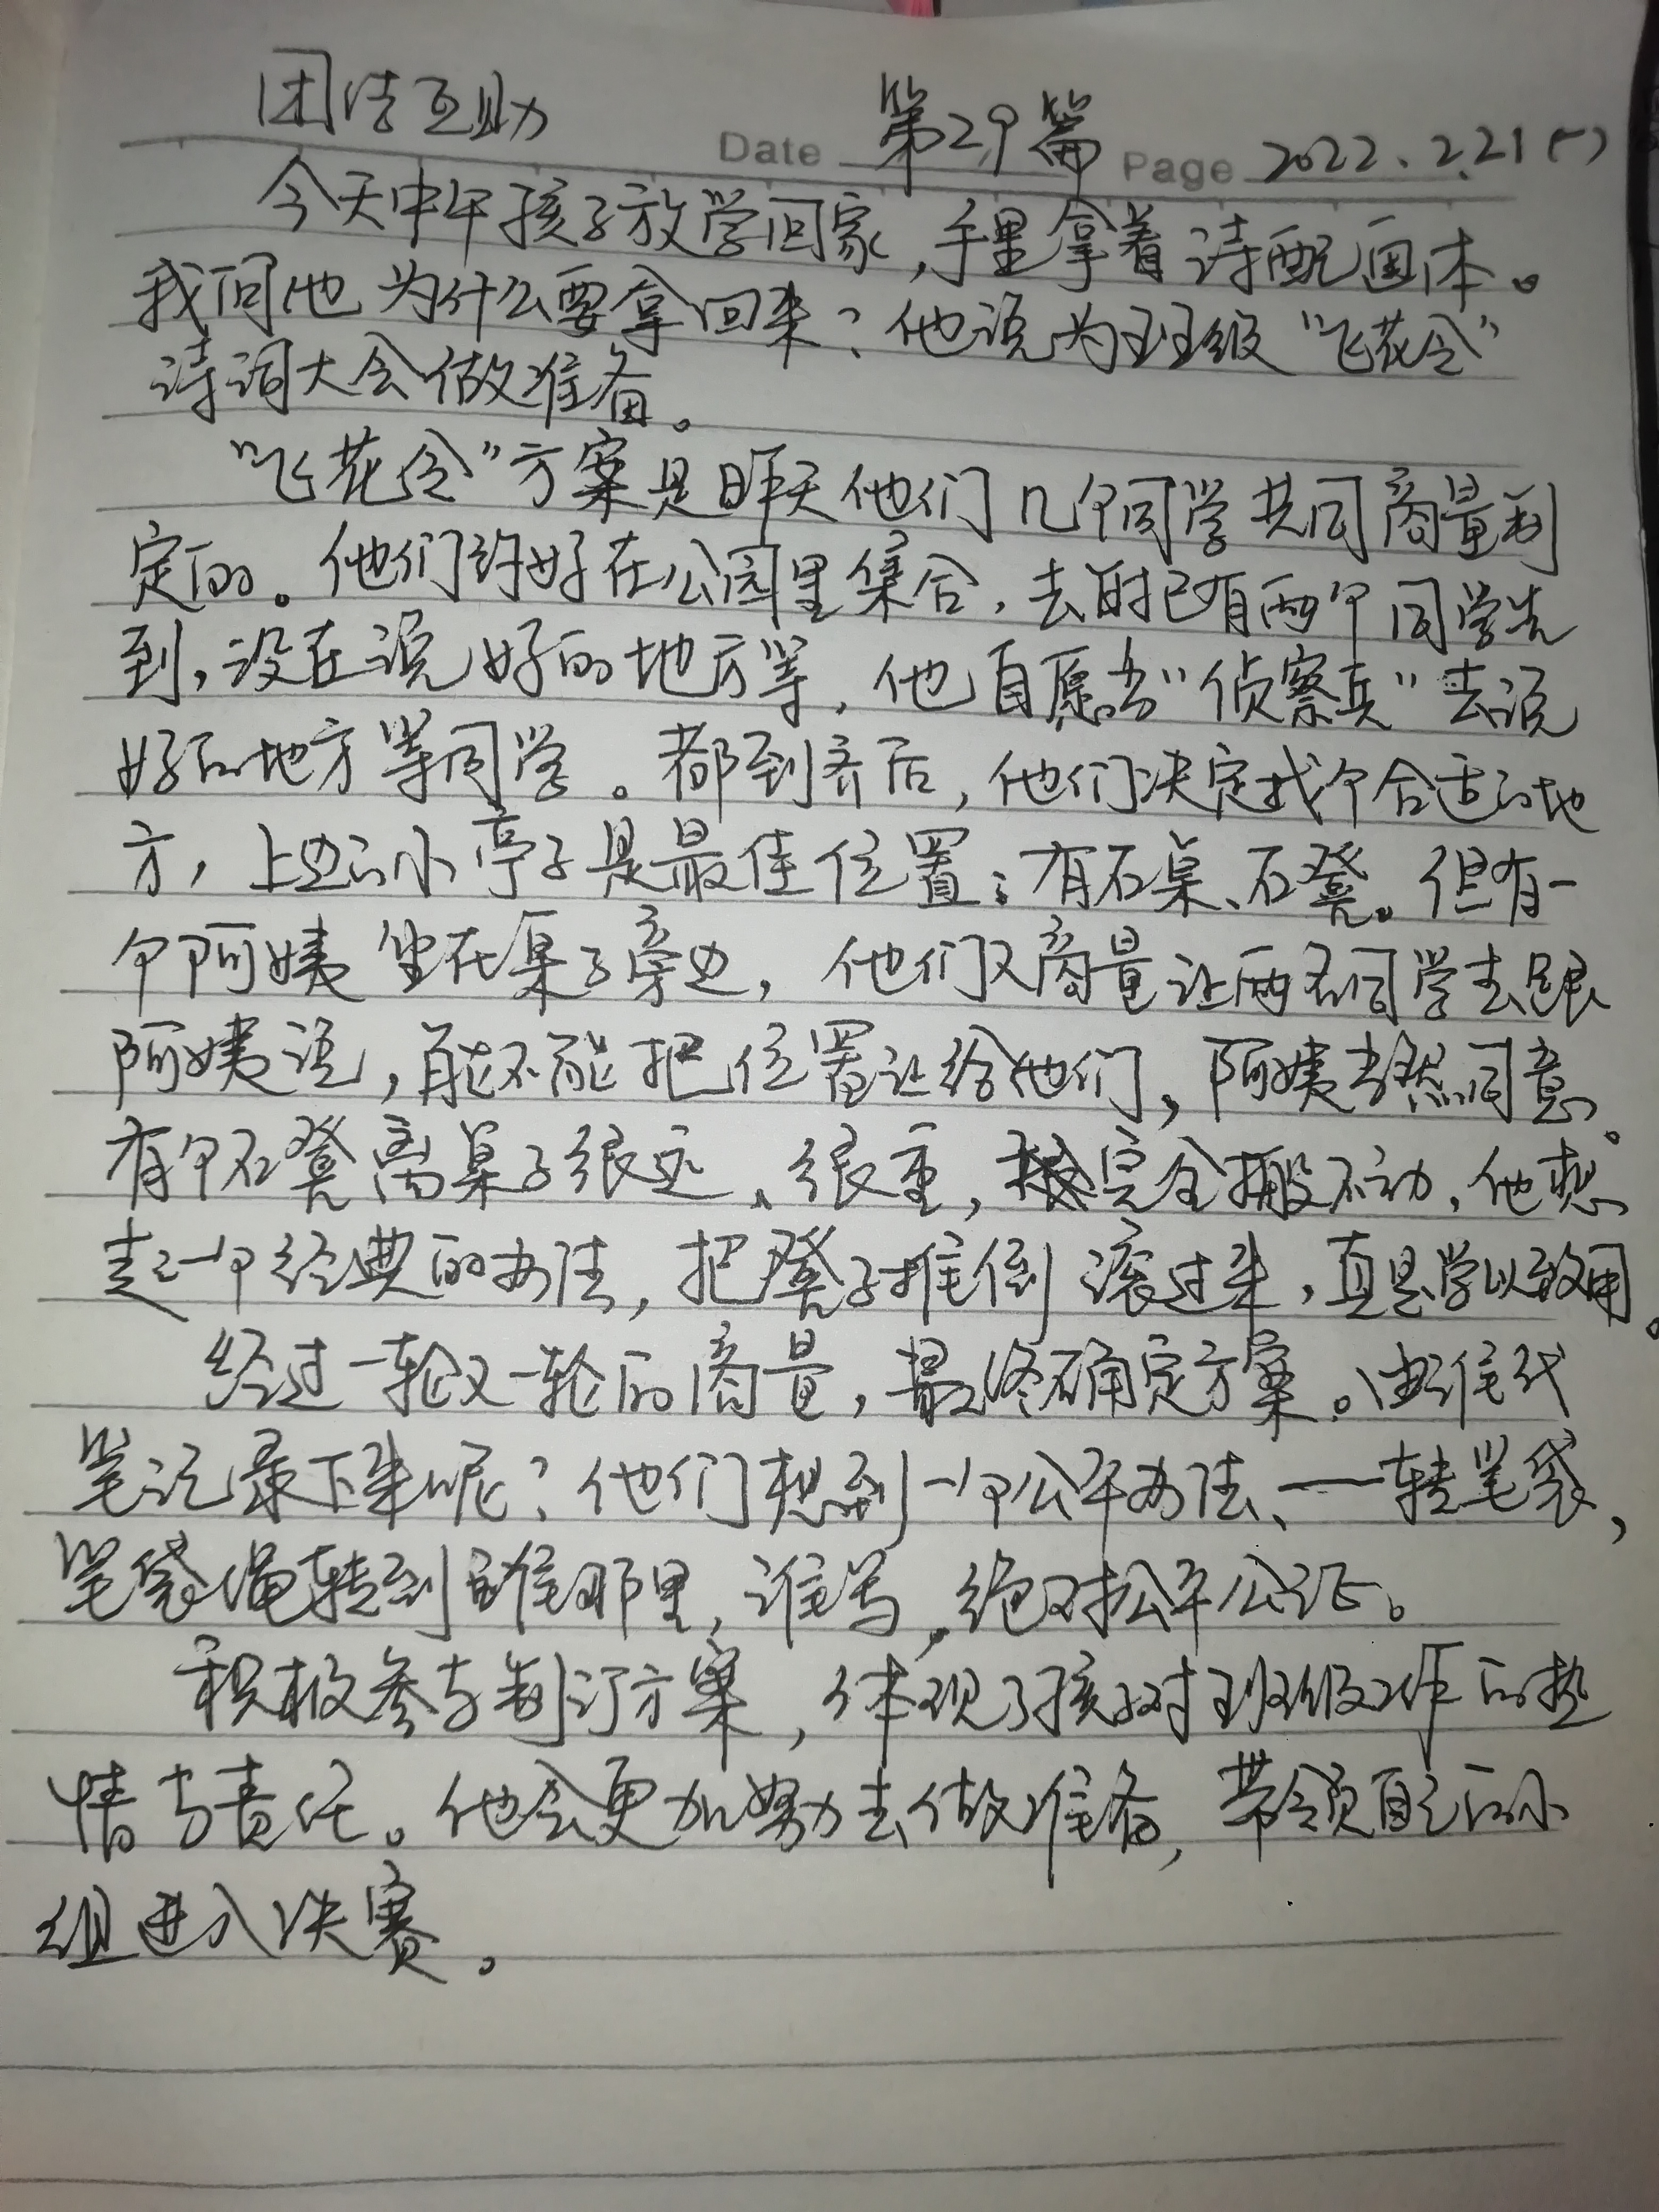 团结互助 Date 第29篇 Page 2022.2.21(一)
今天中午孩子放学回家,手里拿着诗配画本。
我问他为什么要拿回来?他说为班级“飞花令”
诗词大会做准备。
“飞花令”方案是昨天他们几个同学共同商量制
定的。他们约好在公园里集合,去时已有两个同学先
到,没在说好的地方等,他自愿当“侦察兵”去说
好的地方等同学。都到齐后,他们决定找个合适的地
方,上边的小亭子是最佳位置;有石桌、石凳。但有一
个阿姨坐在桌子旁边,他们又商量让两名同学去跟
阿姨说,能不能把位置让给他们,阿姨当然同意。
有个石凳离桌子很远、很重,完全搬不动,他想
起一个经典的办法,把凳子推倒滚过来,真是学以致用。
经过一轮又一轮的商量,最终确定方案。由谁代
笔记录下来呢?他们想到一个公平办法、——转笔袋,
笔袋转到谁那里,谁写,绝对公平公证。
积极参与制订方案,体现了孩子对班级工作的热
情与责任。他会更加努力去做准备,带领自己的小
组进入决赛。